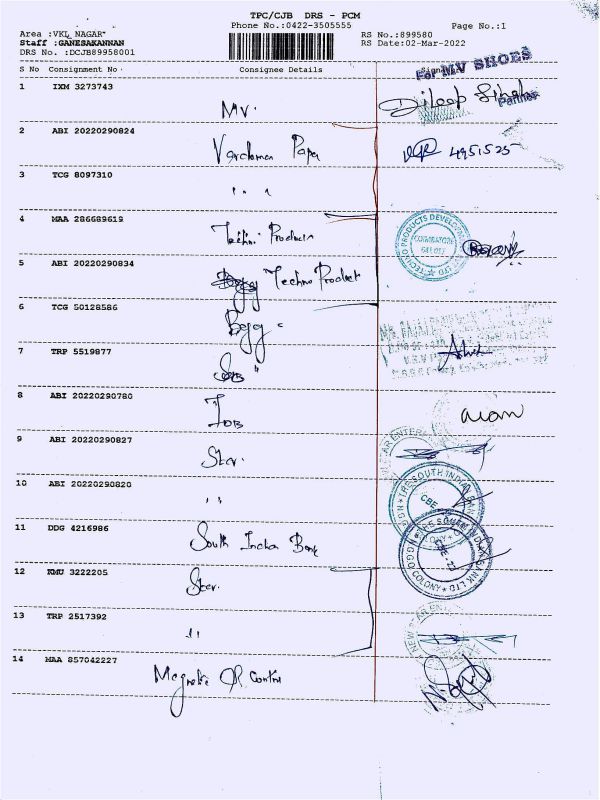 TPC/CJB DRS - PCM
Phone No.:0422-3505555
Page No.:1
Area :VKL NAGAR
RS No.:899580
Staff :GANESAKANNAN
RS Date:02-Mar-2022
DRS No. :DCJB89958001
S No Consignment No. Consignee Details Signature
For MV SHOES
1 IXM 3273743
MV.
Dileep Singh
Partner
2 ABI 20220290824
Vardaman Paper
4951525
3 TCG 8097310
" "
4 MAA 286689619
Techni Products
TECHNO PRODUCTS DEVELOPMENT
COIMBATORE
5 ABI 20220290834
Techno Product
6 TCG 50128586
7 TRP 5519877
"
8 ABI 20220290780
IOB
9 ABI 20220290827
Star.
10 ABI 20220290820
" "
THE SOUTH INDIAN BANK
CBE
11 DDG 4216986
South Indian Bank
THE SOUTH INDIAN BANK LTD
COLONY
12 KMU 3222205
Star.
13 TRP 2517392
" "
14 MAA 857042227
Magnetic